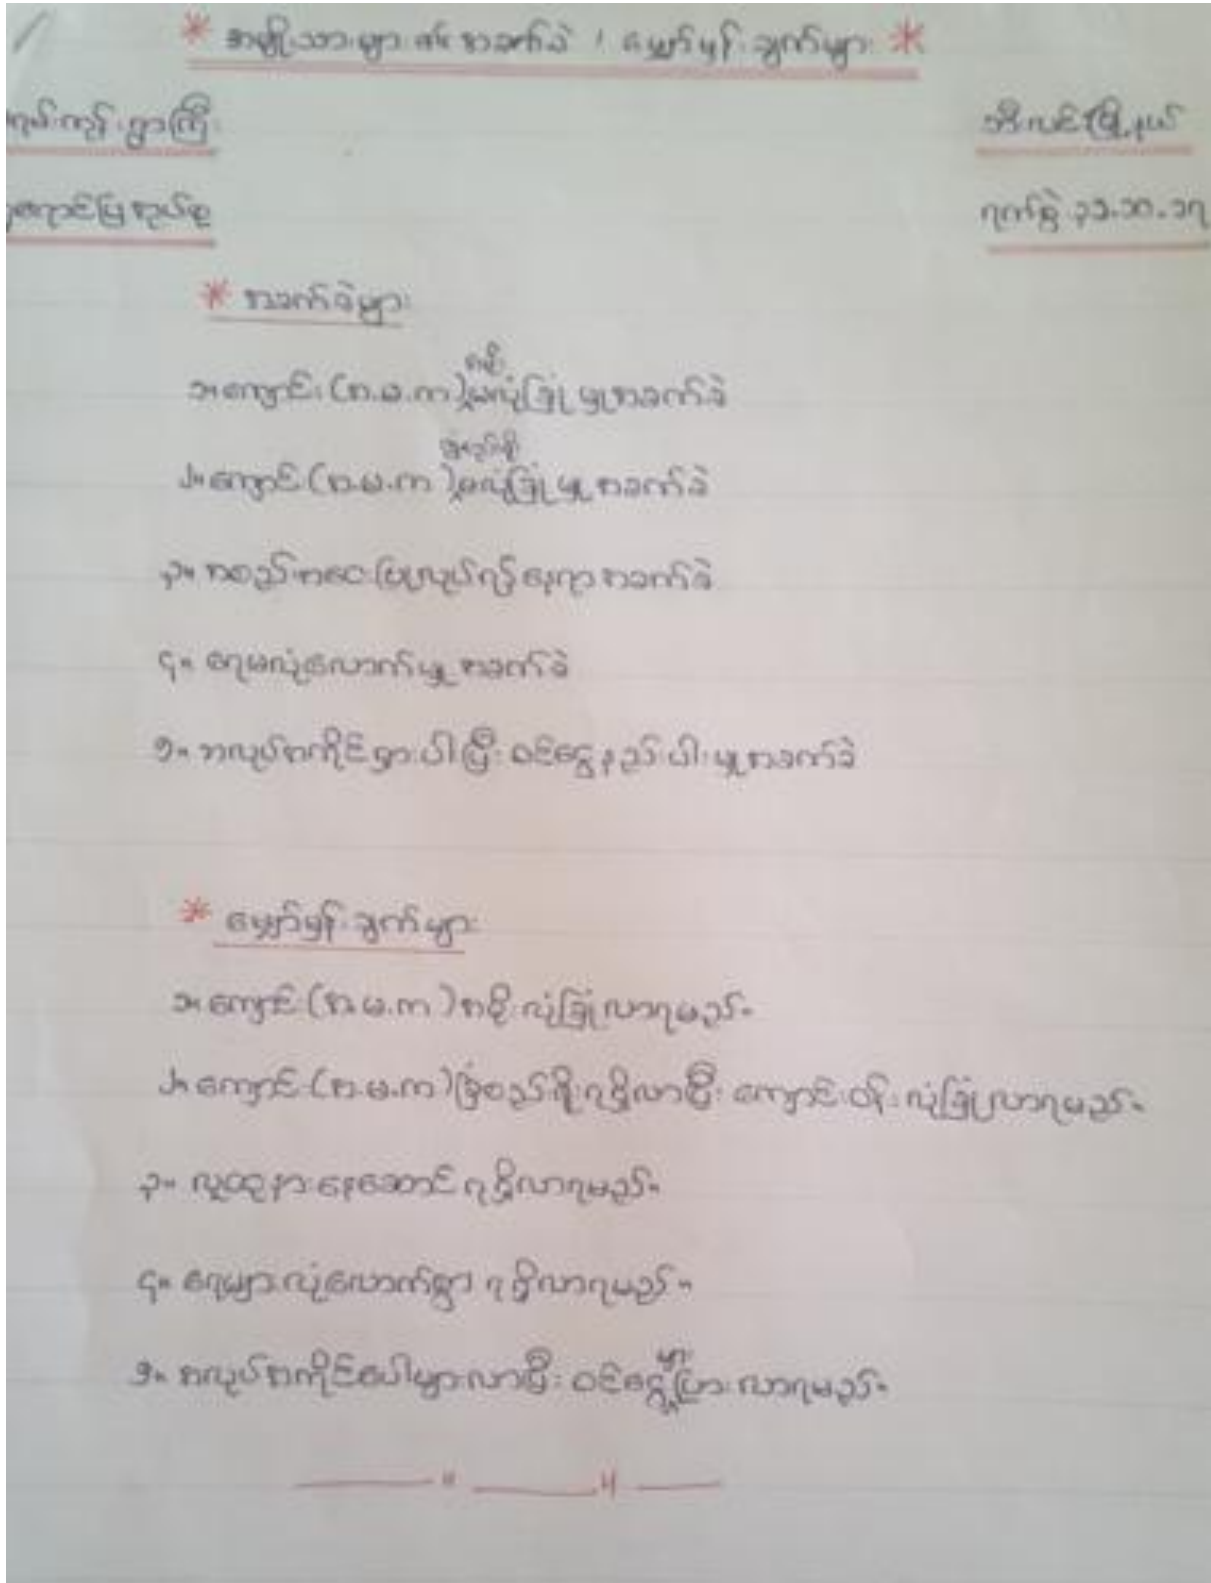 * အမျိုးသားများ၏ အခက်ခဲ ၊ မျှော်မှန်းချက်များ *
ကုန်းရွာကြီး ဘီးလင်းမြို့နယ်
အုပ်စု ရက်စွဲ ၃၁.၁၀.၁၇
* အခက်ခဲများ
၁။ ကျောင်း (အ.မ.က) အမိုး မလုံခြုံမှုအခက်ခဲ
၂။ ကျောင်း (အ.မ.က) ခြံစည်းရိုး မလုံခြုံမှု အခက်ခဲ
၃။ အစည်းအဝေးပြုလုပ်ရန် နေရာ အခက်ခဲ
၄။ ရေမလုံလောက်မှု အခက်ခဲ
၅။ အလုပ်အကိုင်ရှားပါးပြီး ဝင်ငွေနည်းပါးမှုအခက်ခဲ
* မျှော်မှန်းချက်များ
၁။ ကျောင်း (အ.မ.က) အမိုးလုံခြုံလာရမည်။
၂။ ကျောင်း (အ.မ.က) ခြံစည်းရိုးရရှိလာပြီး ကျောင်းဝန်းလုံခြုံလာရမည်။
၃။ လူထုနားနေဆောင် ရရှိလာရမည်။
၄။ ရေများလုံလောက်စွာ ရရှိလာရမည်။
၅။ အလုပ်အကိုင်ပေါများလာပြီး ဝင်ငွေများ ပြားလာရမည်။